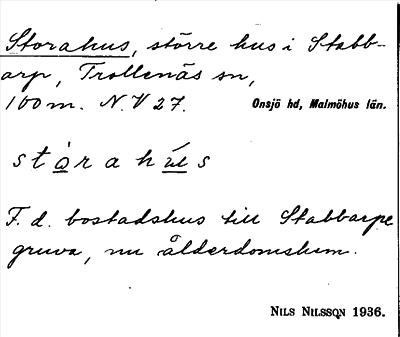 Storahus, större hus i Stabb-
arp, Trollenäs sn,
100 m. N. V 27. Onsjö hd, Malmöhus län.
stọ̀rahú̱s
F. d. bostadshus till Stabbarps
gruva, nu ålderdomshem.
NILS NILSSON 1936.